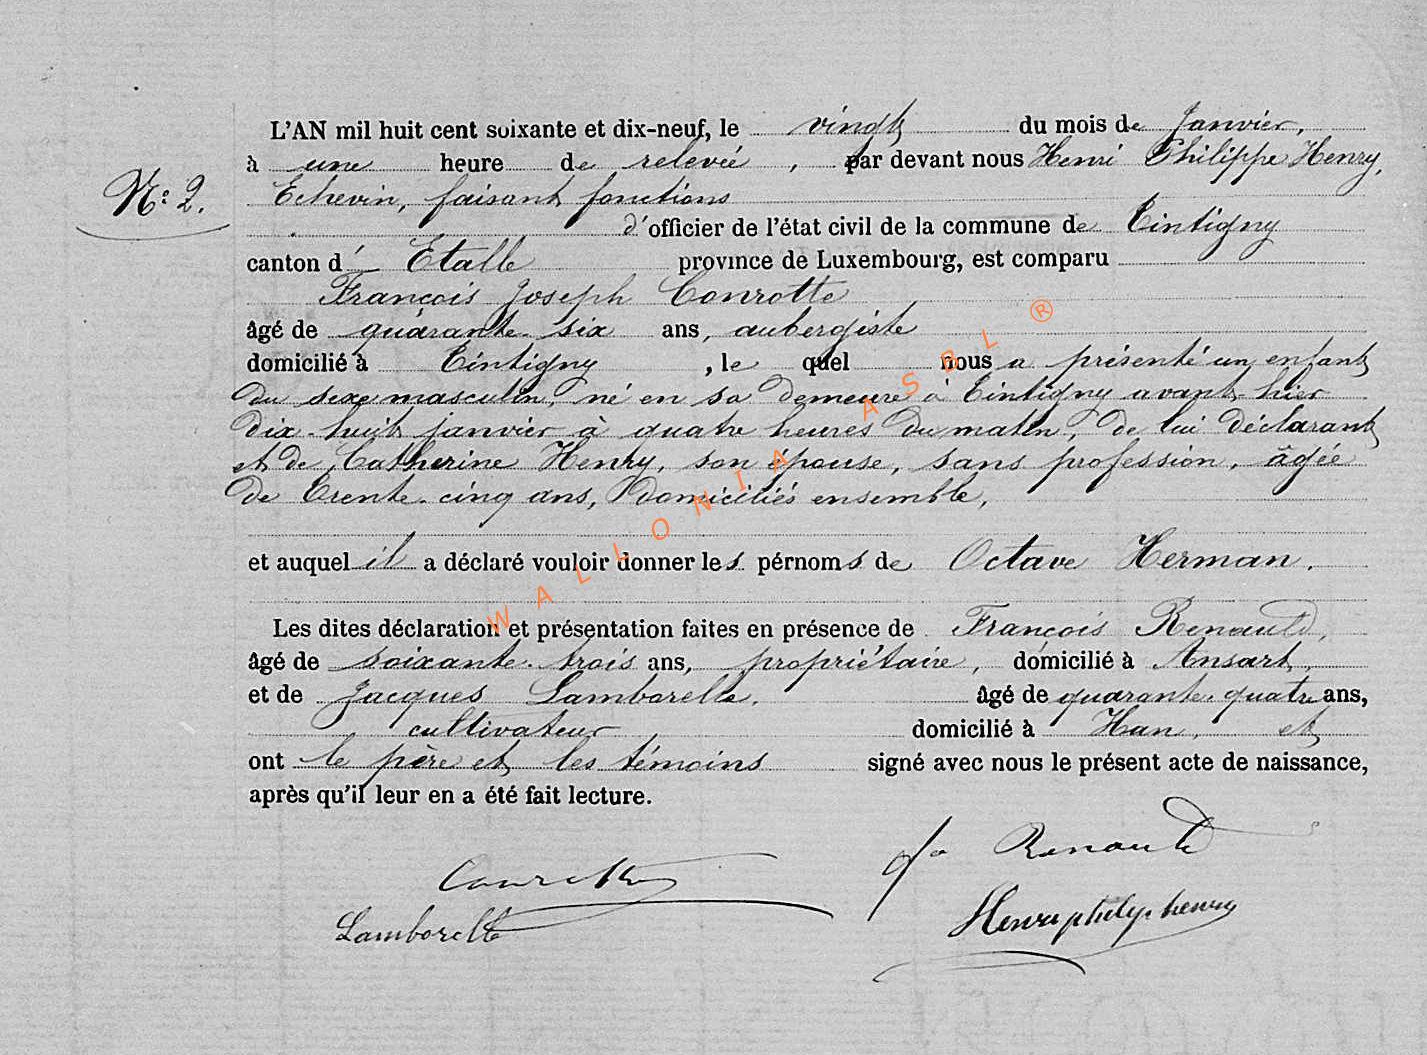 L'AN mil huit cent soixante et dix-neuf, le vingt du mois de Janvier,
à une heure de relevée, par devant nous Henri Philippe Henry,
N° 2.
Echevin, faisant fonctions
d'officier de l'état civil de la commune de Tintigny
canton d'Etalle province de Luxembourg, est comparu
François Joseph Conrotte
âgé de quarante-six ans, aubergiste
domicilié à Tintigny, lequel nous a présenté un enfant
du sexe masculin, né en sa demeure à Tintigny avant-hier
dix-huit janvier à quatre heures du matin, de lui déclarant
et de Catherine Henry, son épouse, sans profession, âgée
de trente-cinq ans, domiciliés ensemble,
et auquel il a déclaré vouloir donner les pérnoms de Octave Herman.
Les dites déclaration et présentation faites en présence de François Renauld,
âgé de soixante-trois ans, propriétaire, domicilié à Ansart,
et de Jacques Lamborelle, âgé de quarante-quatre ans,
cultivateur domicilié à Han, et
ont le père et les témoins signé avec nous le présent acte de naissance,
après qu'il leur en a été fait lecture.
Conrotte
Renauld
Lamborelle
Henri philip henry
WALLONIA ASBL ®